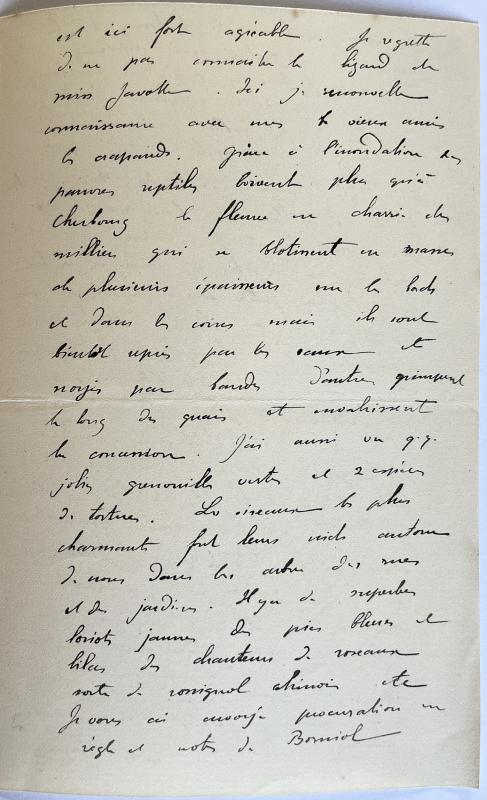 est ici fort agréable. Je regrette
de ne pas connaitre le lézard de
miss Javotte. Ici je renouvelle
connaissance avec mes vieux amis
les crapauds. Grâce à l'inondation ces
pauvres reptiles boivent plus qu'à
Cherbourg le fleuve en charrie des
milliers qui se blotissent en masses
de plusieurs épaisseurs sur les bords
et dans les coins mais ils sont
bientôt repris par les eaux et
noyés par bandes d'autres grimpent
le long des quais et envahissent
la concession. J'ai aussi vu q.q.
jolies grenouilles vertes et 2 espèces
de tortues. Les oiseaux les plus
charmants font leurs nids autour
de nous dans les arbres des rues
et des jardins. Il y a de superbes
loriots jaunes des pies bleues et
lilas des chanteurs de roseaux
sorte de rossignol chinois etc
Je vous ai envoyé procuration en
règle et notes de Borniol